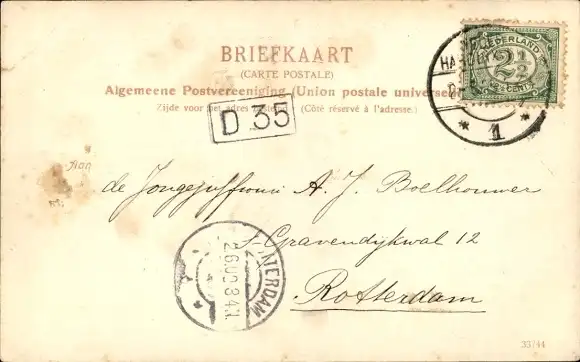 BRIEFKAART
(CARTE POSTALE)
Algemeene Postvereeniging (Union postale universelle)
Zijde voor het adres bestemd. (Côté réservé à l'adresse.)
NEDERLAND
2½
CENT
1
D 35
de Jongejuffrouw A. J. Boelhouwer
s-Gravendijkwal 12
Rotterdam
33744